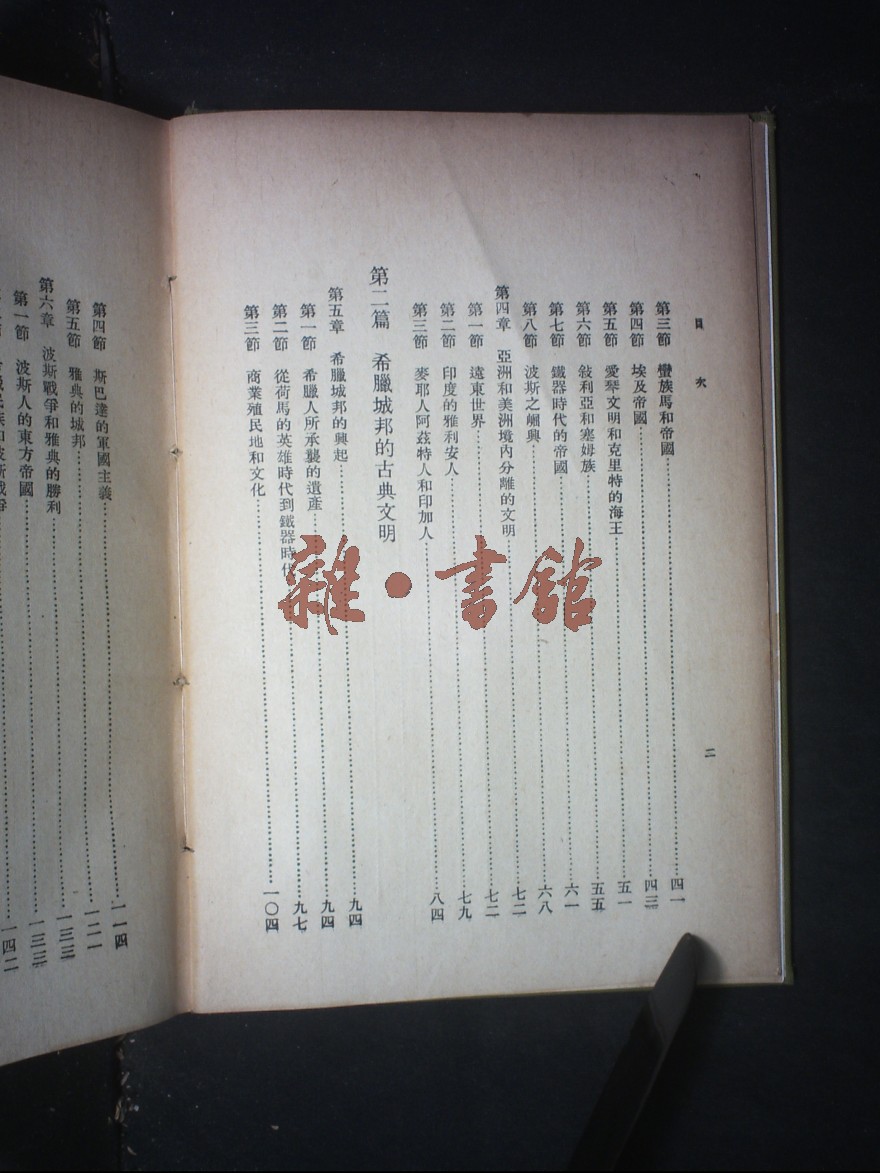 目次
二
第三節 蠻族馬和帝國……四一
第四節 埃及帝國……四三
第五節 愛琴文明和克里特的海王……五一
第六節 敍利亞和塞姆族……五五
第七節 鐵器時代的帝國……六一
第八節 波斯之崛興……六八
第四章 亞洲和美洲境內分離的文明……七二
第一節 遠東世界……七二
第二節 印度的雅利安人……七九
第三節 麥耶人阿茲特人和印加人……八四
第二篇 希臘城邦的古典文明
第五章 希臘城邦的興起……九四
第一節 希臘人所承襲的遺產……九四
第二節 從荷馬的英雄時代到鐵器時代……九七
第三節 商業殖民地和文化……一〇四
第四節 斯巴達的軍國主義……一一四
第五節 雅典的城邦……一二一
第六章 波斯戰爭和雅典的勝利……一三三
第一節 波斯人的東方帝國……一三三
一四二
雜·書館